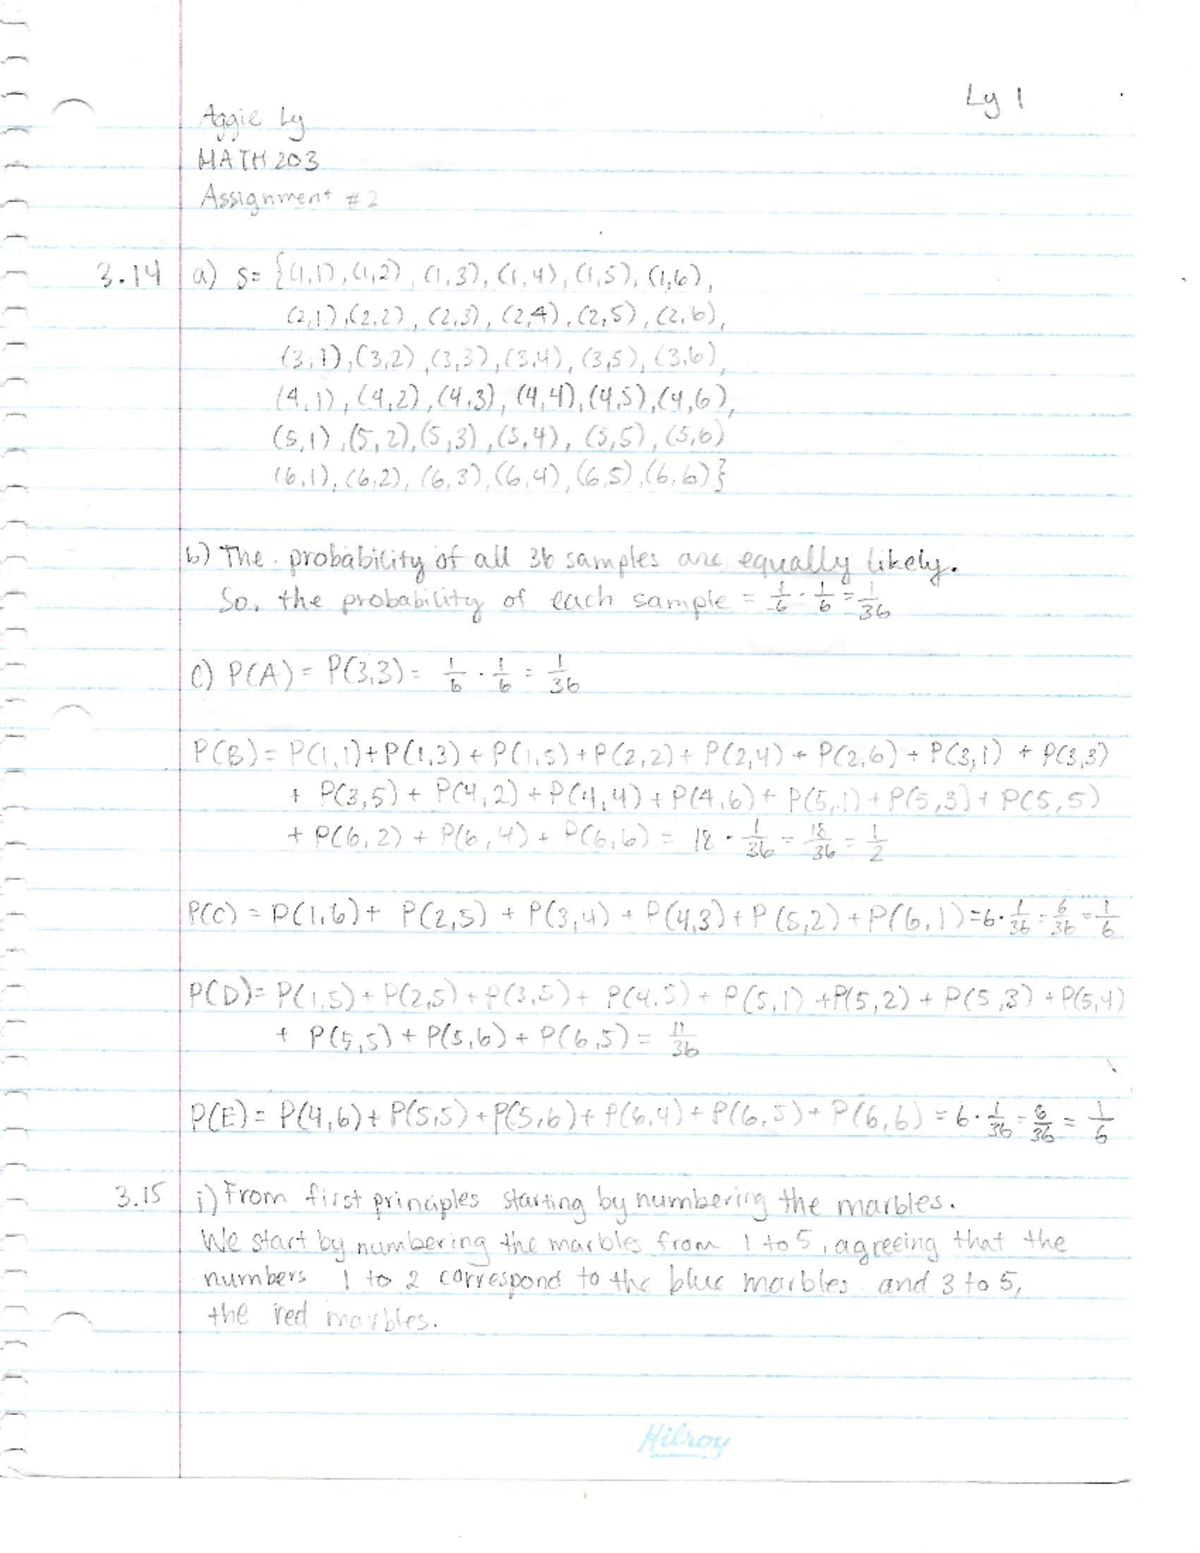 Ly 1
Aggie Ly
MATH 203
Assignment #2
3.14 a) S= {(1,1), (1,2), (1,3), (1,4), (1,5), (1,6),
(2,1), (2,2), (2,3), (2,4), (2,5), (2,6),
(3,1), (3,2), (3,3), (3,4), (3,5), (3,6),
(4,1), (4,2), (4,3), (4,4), (4,5), (4,6),
(5,1), (5,2), (5,3), (5,4), (5,5), (5,6)
(6,1), (6,2), (6,3), (6,4), (6,5), (6,6)}
b) The probability of all 36 samples are equally likely.
So, the probability of each sample = 1/6 · 1/6 = 1/36
c) P(A) = P(3,3) = 1/6 · 1/6 = 1/36
P(B) = P(1,1) + P(1,3) + P(1,5) + P(2,2) + P(2,4) + P(2,6) + P(3,1) + P(3,3)
+ P(3,5) + P(4,2) + P(4,4) + P(4,6) + P(5,1) + P(5,3) + P(5,5)
+ P(6,2) + P(6,4) + P(6,6) = 18 · 1/36 = 18/36 = 1/2
P(C) = P(1,6) + P(2,5) + P(3,4) + P(4,3) + P(5,2) + P(6,1) = 6 · 1/36 = 6/36 = 1/6
P(D) = P(1,5) + P(2,5) + P(3,5) + P(4,5) + P(5,1) + P(5,2) + P(5,3) + P(5,4)
+ P(5,5) + P(5,6) + P(6,5) = 11/36
P(E) = P(4,6) + P(5,5) + P(5,6) + P(6,4) + P(6,5) + P(6,6) = 6 · 1/36 = 6/36 = 1/6
3.15 i) From first principles starting by numbering the marbles.
We start by numbering the marbles from 1 to 5, agreeing that the
numbers 1 to 2 correspond to the blue marbles and 3 to 5,
the red marbles.
Hilroy